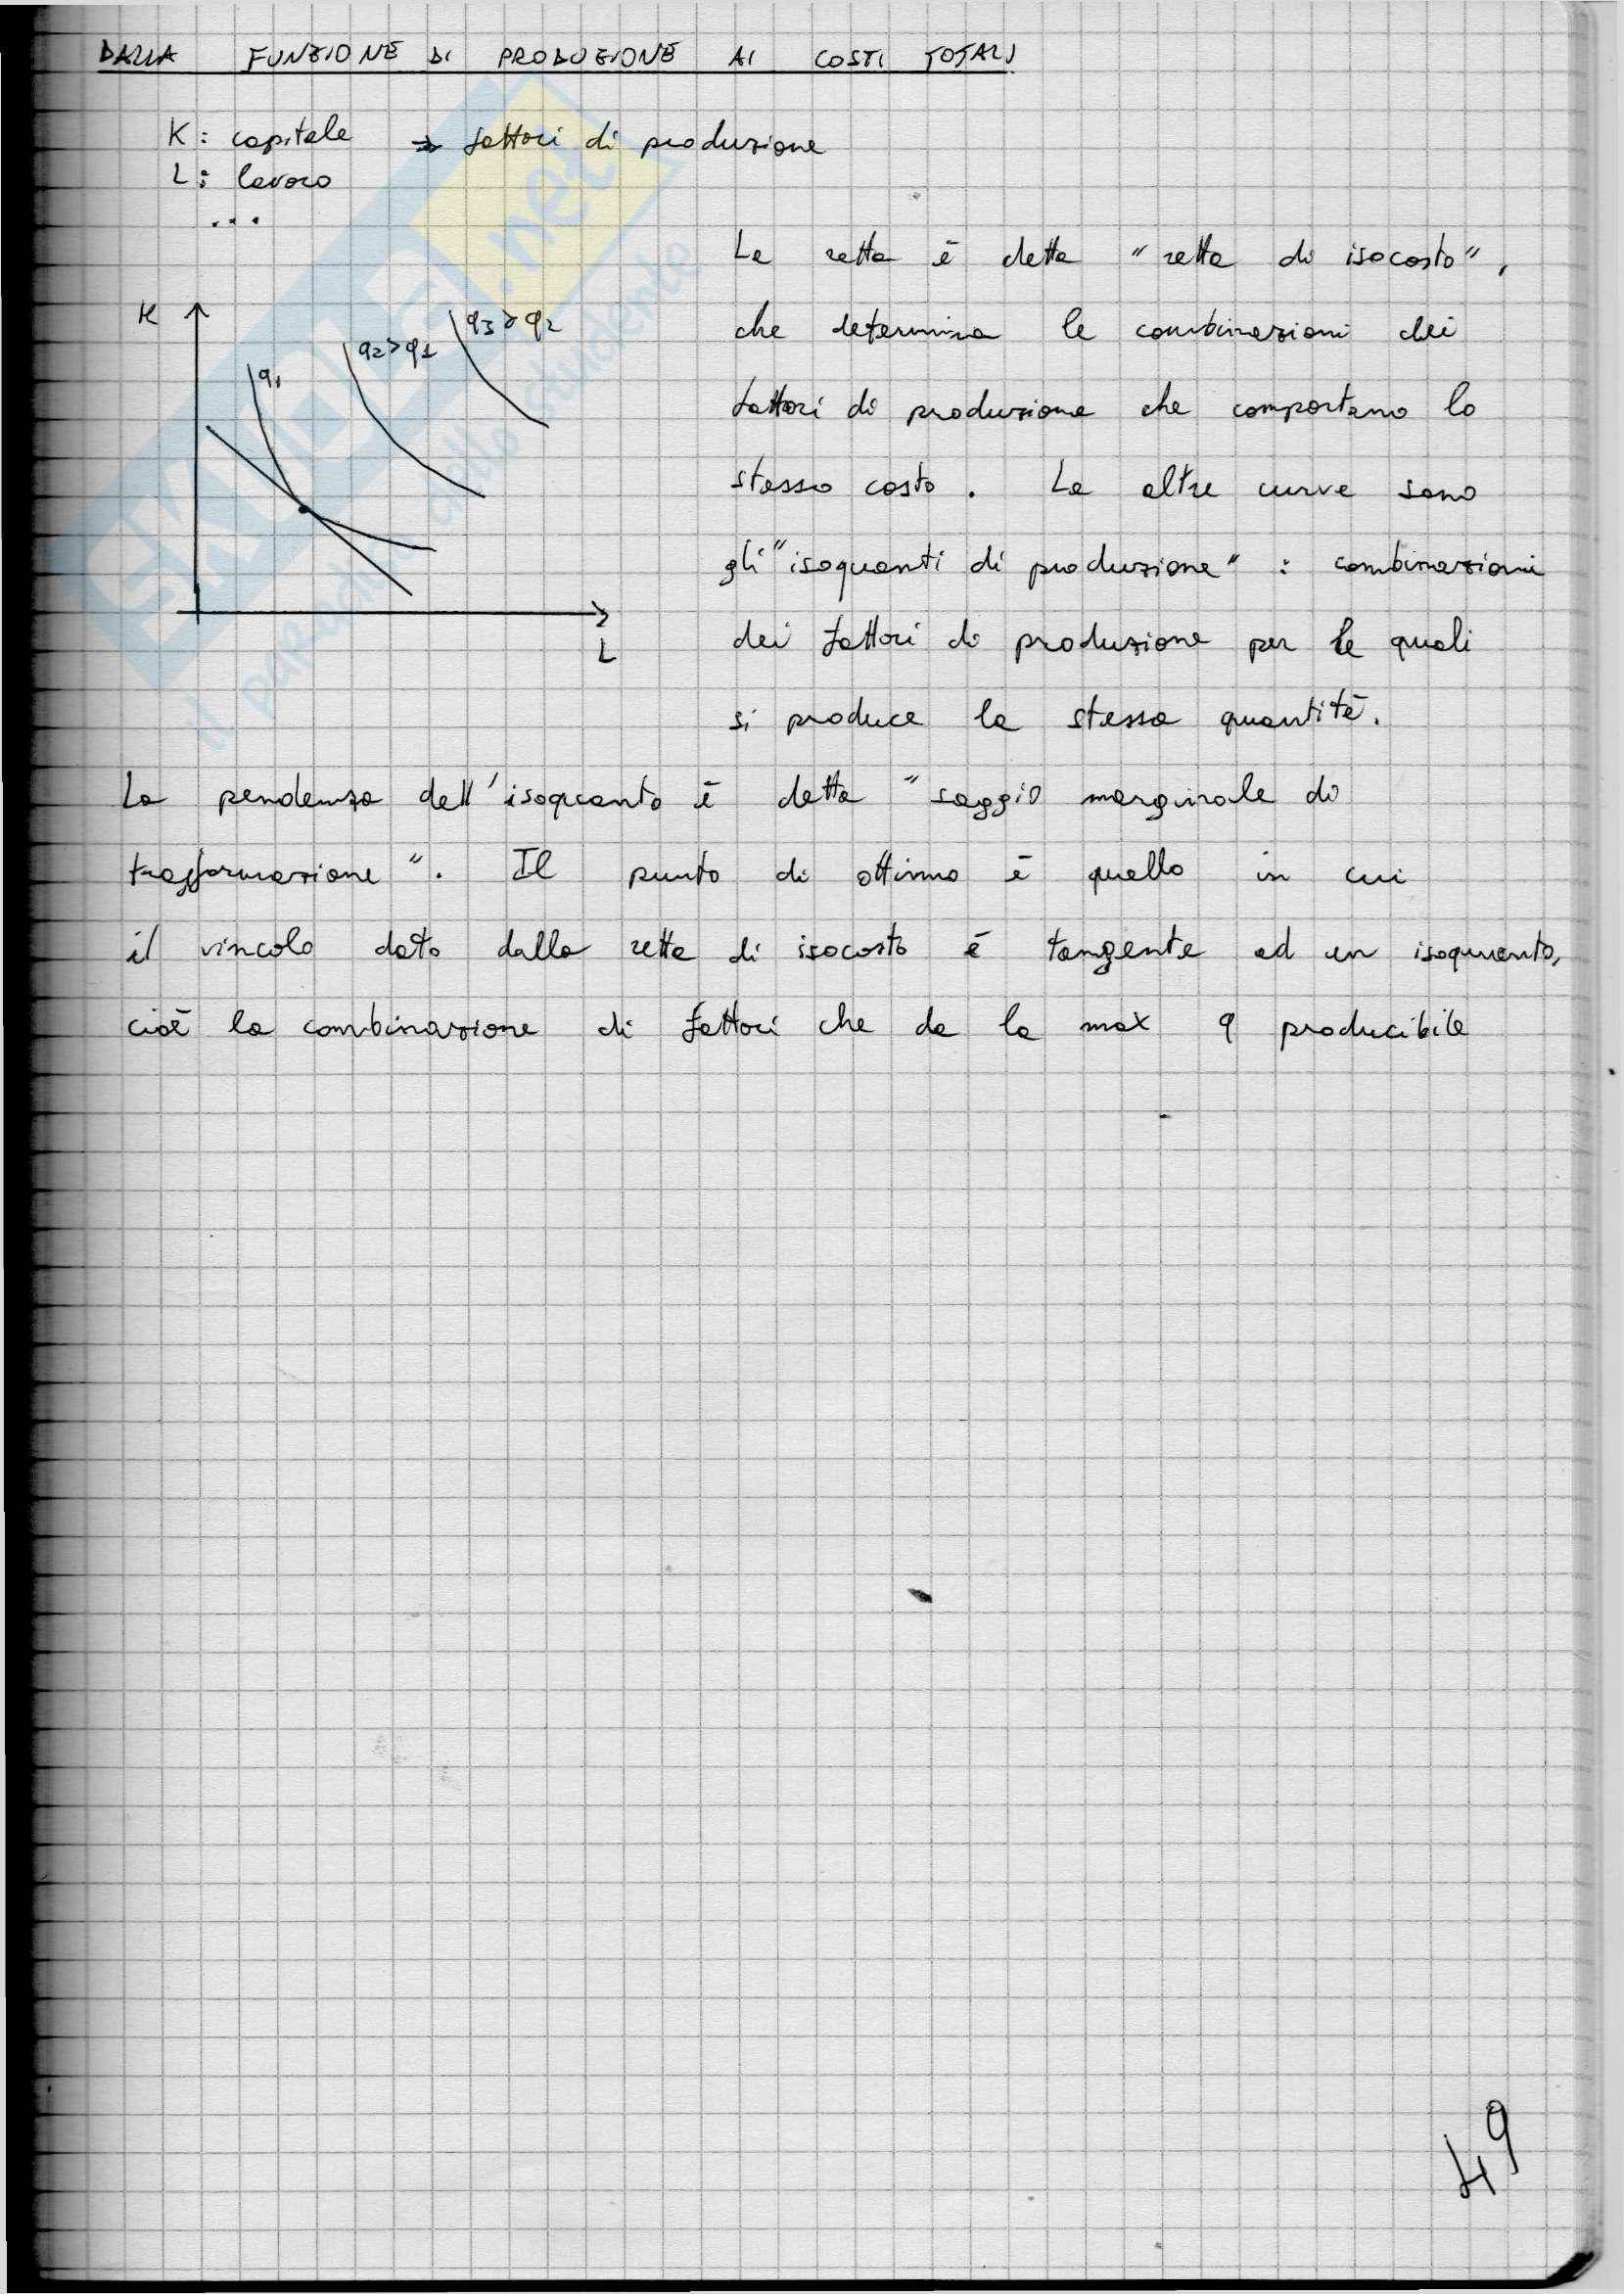 DALLA FUNZIONE DI PRODUZIONE AI COSTI TOTALI
K: capitale → fattori di produzione
L: lavoro
...
La retta è detta "retta di isocosto",
che determina le combinazioni dei
fattori di produzione che comportano lo
stesso costo. Le altre curve sono
gli "isoquanti di produzione": combinazioni
dei fattori di produzione per le quali
si produce la stessa quantità.
K
q1
q2>q1
q3>q2
L
La pendenza dell'isoquanto è detta "saggio marginale di
trasformazione". Il punto di ottimo è quello in cui
il vincolo dato dalla retta di isocosto è tangente ad un isoquanto,
cioè la combinazione di fattori che da la max q producibile
49
SKUOLA.net
il paradiso dello studente